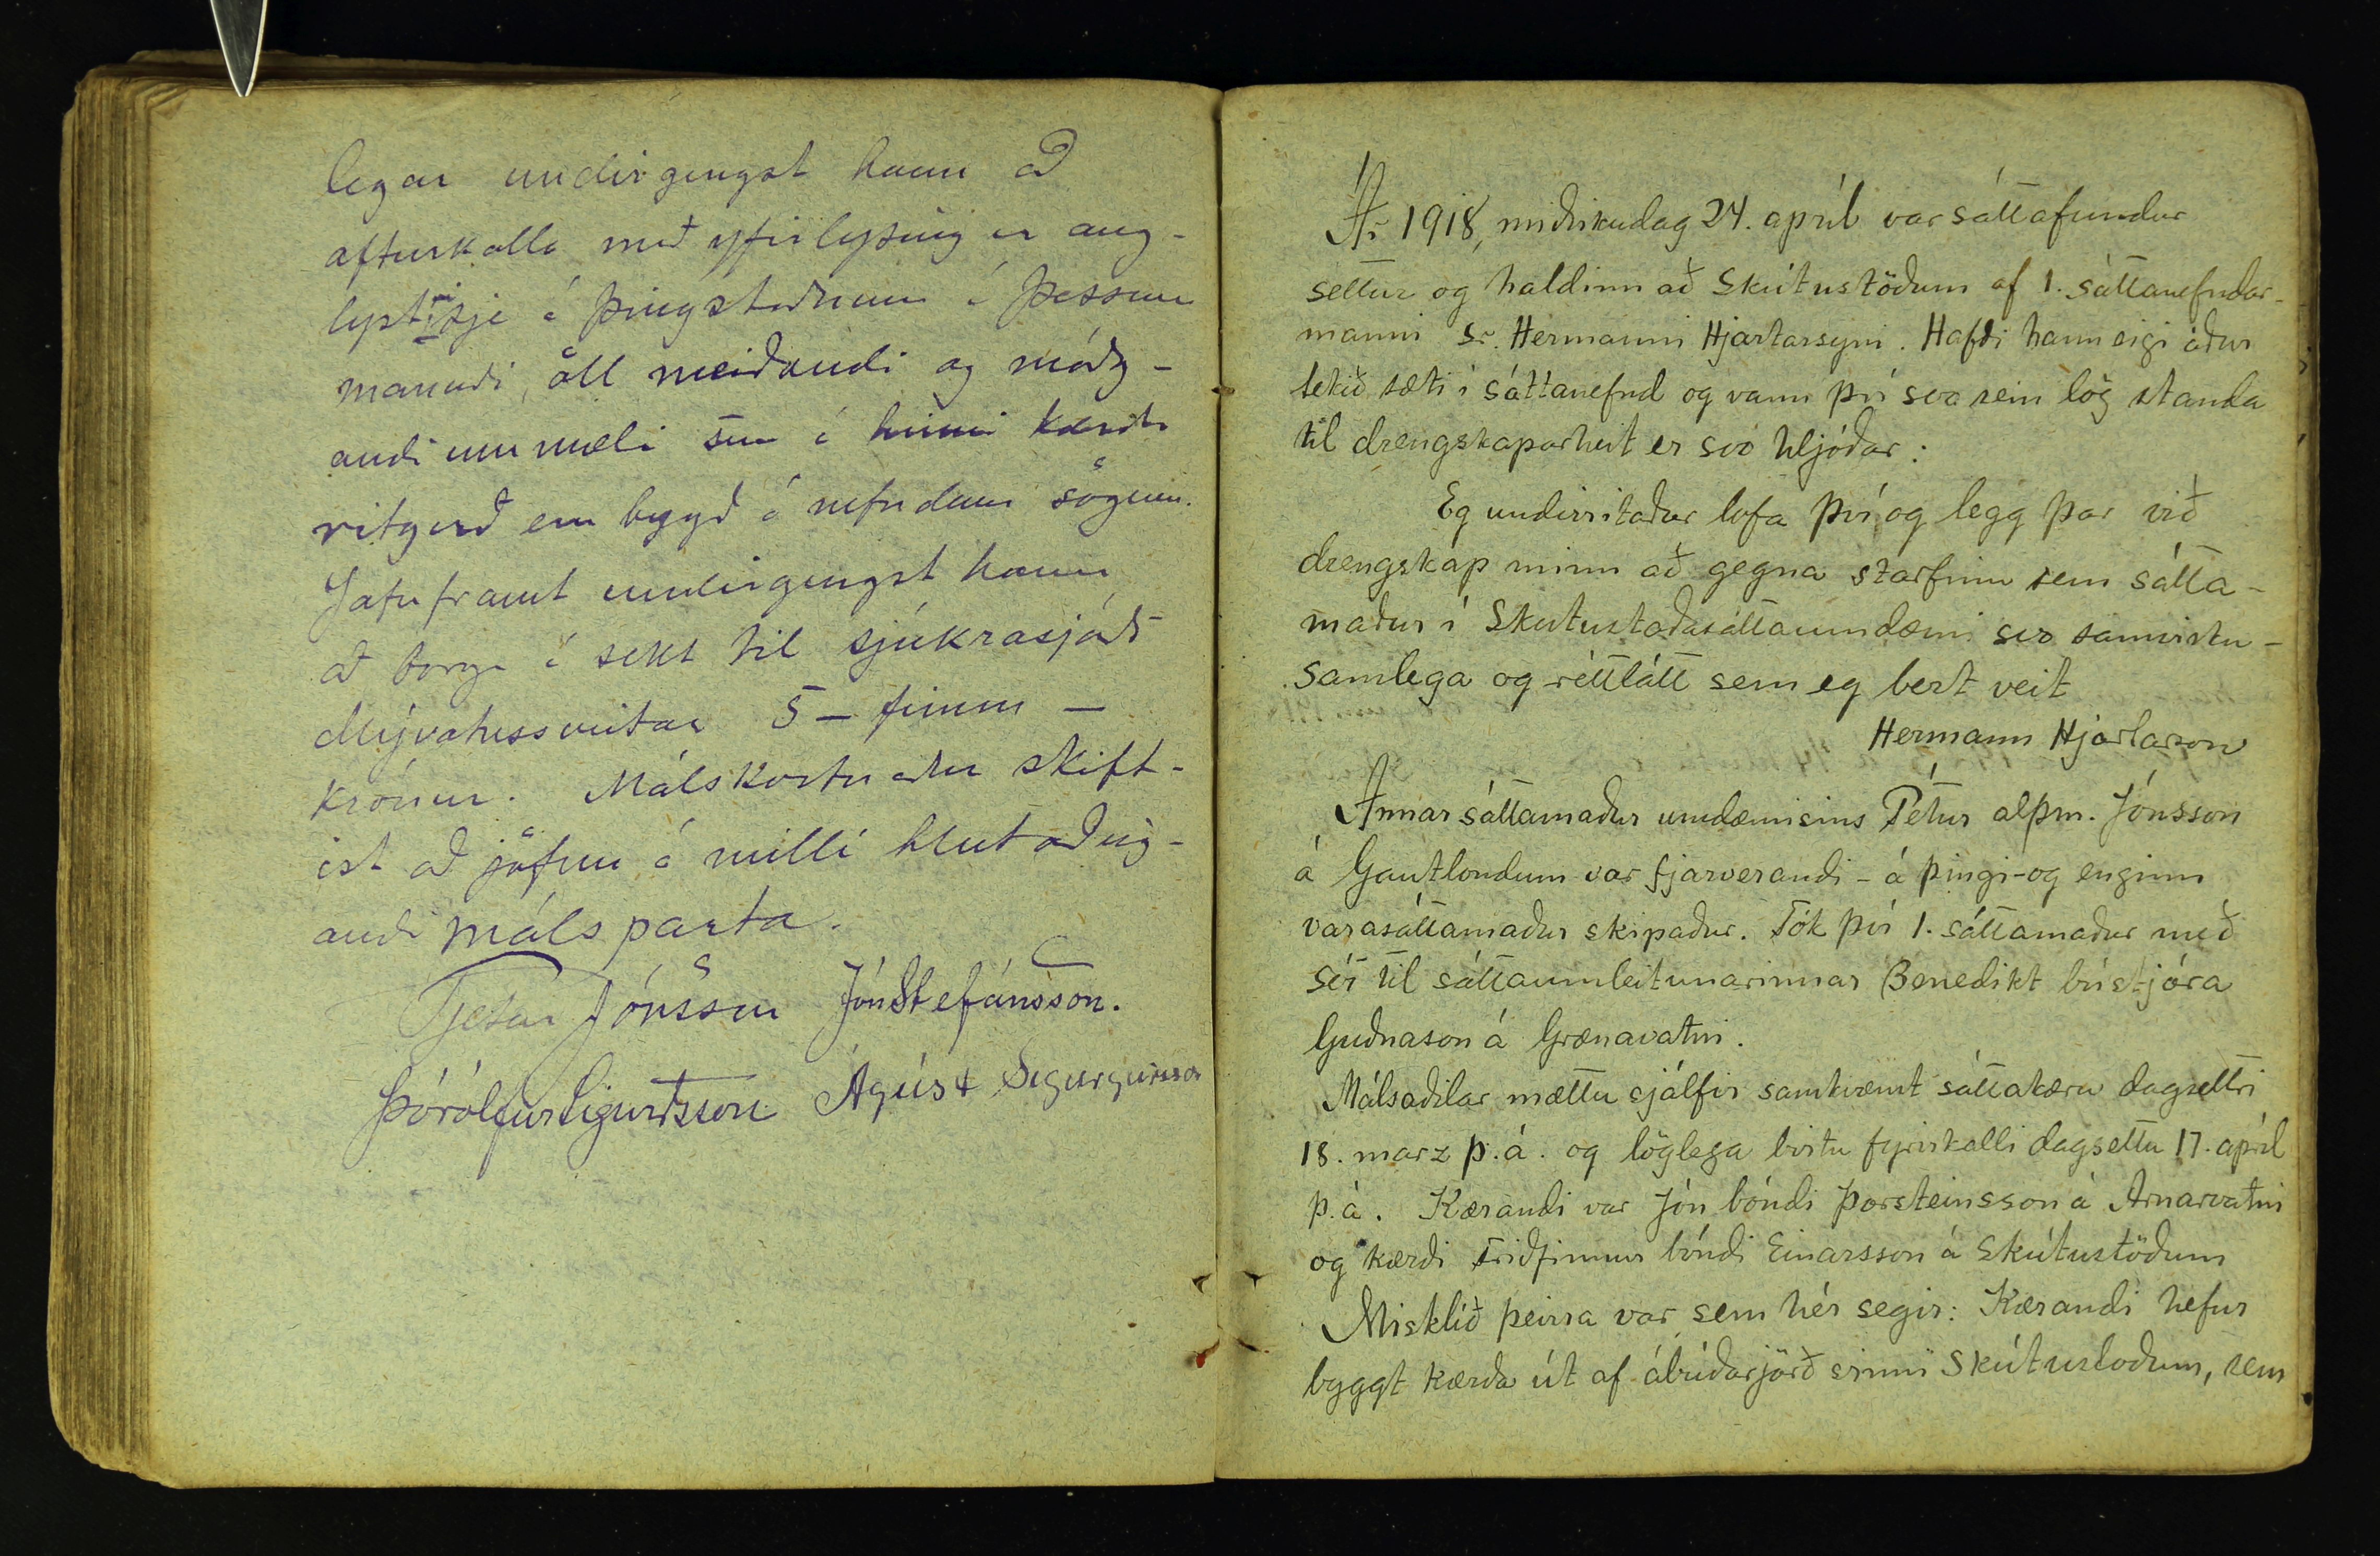 legar undirgengst hann að
afturkalla með yfirlysing er aug-
lyst sje á þingstaðnum í þessum
manuði, öll meiðandi og móðg-
andi um mæli sem í hinni kærðu
ritgerð eru byggð á nefndum sögum.
Jafnframt undirgengst hann
að borga í sekt til sjúkrasjóðs
Mývatnssveitar 5 – fimm –
krónur. Málskostnaður skift-
ist að jöfnu á milli hlutaðeig-
andi málsparta.
Pjetur Jónsson Jón Stefánsson.
Þórólfur Sigurðsson Ágúst Sigurgeirsson
Ár 1918, miðvikudag 24. apríl var sáttafundur
settur og haldinn að Skútustöðum af 1. sáttanefndar-
manni Sr. Hermanni Hjartarsyni. Hafði hann eigi áður
tekið sæti í sáttanefnd og vann því svo sem lög standa
til drengskaparheit er svo hljóðar:
Eg undirritaður lofa því og legg þar við
drengskap minn að gegna starfinu sem sátta-
maður í Skutustaðasáttaumdæmi svo samvisku-
samlega og réttlátt sem eg best veit
Hermann Hjartarson
Annar sáttamaður umdæmisins Pétur alþm. Jónsson
á Gautlondum var fjarverandi – á þingi – og enginn
varasáttamaður skipaður. Tók því 1. sáttamaður með
sér til sáttaumleitunarinnar Benedikt bústjóra
Guðnason á Grænavatni.
Málsaðilar mættu sjálfir samkvæmt sáttakæru dagsettri
18. marz þ.á. og löglega birtu fyrirkalli dagsettu 17. apríl
þ.á. Kærandi var Jón bóndi Þorsteinsson á Arnarvatni
og kærði Friðfinnur bóndi Einarsson á Skútustöðum
Misklíð þeirra var sem hér segir: Kærandi hefur
byggt kærða út af ábúðarjörð sinni Skútustoðum, sem